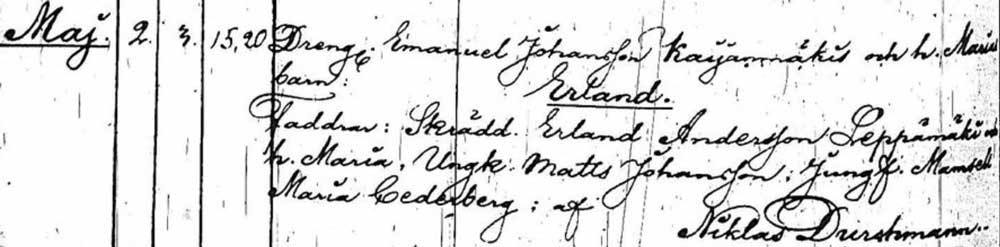 Maj. 2. 3. 15,20 Dreng. Emanuel Johansson Kaijanmäkis och h. Maria
barn:
Erland.
Faddrar: Skrädd. Erland Andersson Leppämäki och
h. Maria, Ungk. Matts Johansson; Jungf. Mamsell
Maria Cederberg; af
Niklas Durchmann.